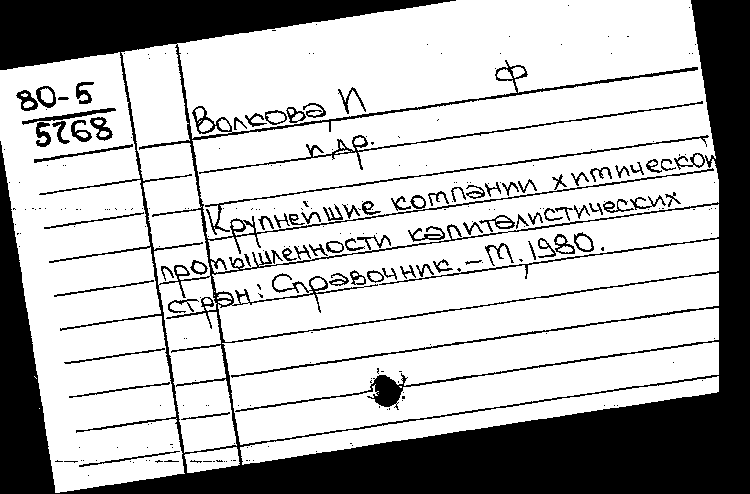 Ф
80-5
5768
Волкова, И
и др.
Крупнейшие компании химической
промышленности капиталистических
стран: Справочник. – М., 1980.